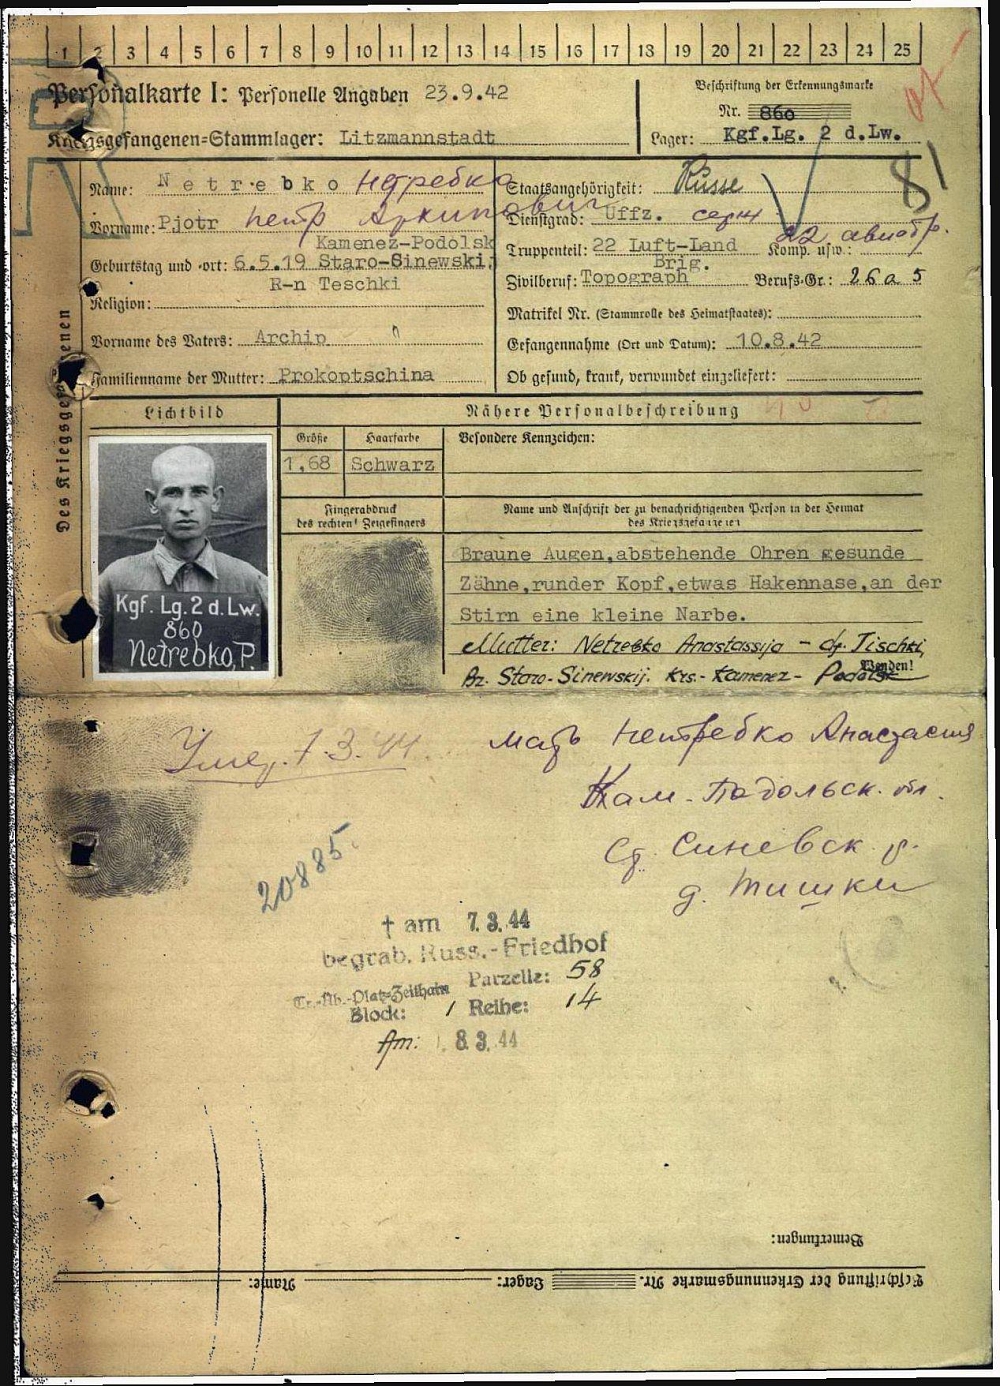 1 2 3 4 5 6 7 8 9 10 11 12 13 14 15 16 17 18 19 20 21 22 23 24 25
Personalkarte I: Personelle Angaben 23.9.42
Kriegsgefangenen=Stammlager: Litzmannstadt
Beschriftung der Erkennungsmarke
Nr. 860
Lager: Kgf.Lg. 2 d.Lw.
81
Des Kriegsgefangenen
Name: Netrebko Нетребко
Vorname: Pjotr Петр Архипович
Kamenez-Podolsk
Geburtstag und -ort: 6.5.19 Staro-Sinewski,
R-n Teschki
Religion:
Vorname des Vaters: Archip
Familienname der Mutter: Prokoptschina
Staatsangehörigkeit: Russe
Dienstgrad: Uffz. серж
Truppenteil: 22 Luft-Land Komp. usw.: 22 авиабр.
Brig.
Zivilberuf: Topograph Berufs-Gr.: 26 a 5
Matrikel Nr. (Stammrolle des Heimatstaates):
Gefangennahme (Ort und Datum): 10.8.42
Ob gesund, krank, verwundet eingeliefert:
Lichtbild
Nähere Personalbeschreibung
Größe Haarfarbe Besondere Kennzeichen:
1,68 Schwarz
Fingerabdruck
des rechten! Zeigefingers
Name und Anschrift der zu benachrichtigenden Person in der Heimat
des Kriegsgefangenen
Kgf. Lg. 2 d. Lw.
860
Netrebko, P.
Braune Augen,abstehende Ohren gesunde
Zähne,runder Kopf,etwas Hakennase,an der
Stirn eine kleine Narbe.
Mutter: Netrebko Anastassija - df. Tischki,
Bz. Staro-Sinewskij. Krs.-Kamenez-Podolsk
Wenden!
Умер. 7.3.44.
мать Нетребко Анастасия
Кам-Подольск. обл.
Ст. Синевск р.
д. Тишки
20885.
† am 7.3.44
begrab. Russ.-Friedhof
Tr.-Üb.-Platz=Zeithain Parzelle: 58
Block: 1 Reihe: 14
Am: 8.3.44
Bemerkungen:
Beschriftung der Erkennungsmarke Nr. Lager: Name: